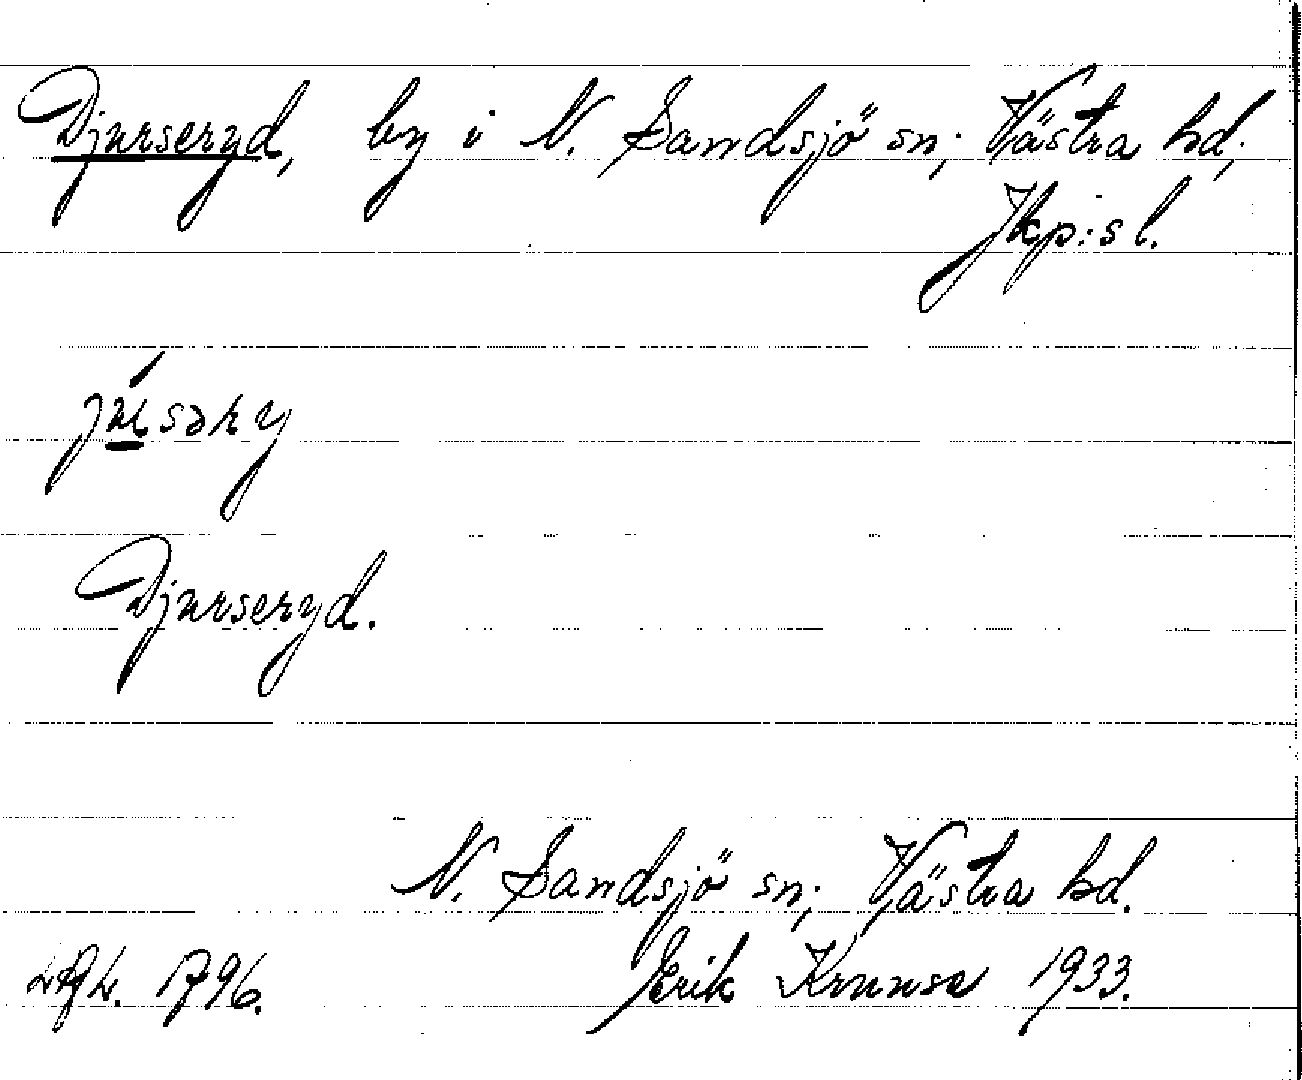 Djurseryd, by i N. Sandsjö sn; Västra hd;
Jkp:s l.
júsəry
Djurseryd.
N. Sandsjö sn; Västra hd.
1796. Erik Kruuse 1933.